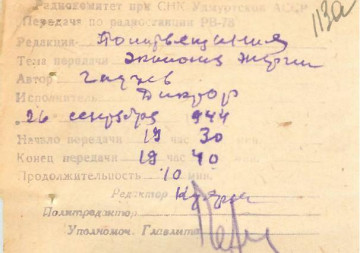 113а
Радиокомитет при СНК Удмуртской АССР
Передача по радиостанции РВ-78
Редакция Политвещания
Тема передачи Экономия Энергии
Автор
Исполнитель Диктор
26 сентября 944
Начало передачи 19 час 30
Конец передачи 19 час 40
Продолжительность 10 мин.
Редактор
Политредактор
Уполномоч. Главлита